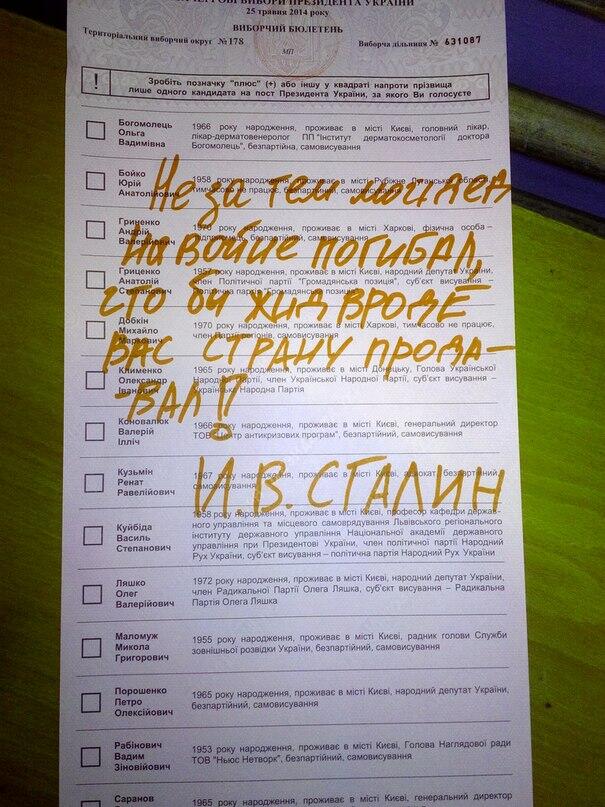 25 травня 2014 року
ВИБОРЧИЙ БЮЛЕТЕНЬ
Територіальний виборчий округ №178
МП
Виборча дільниця № 631087
! Зробіть позначку "плюс" (+) або іншу у квадраті напроти прізвища
лише одного кандидата на пост Президента України, за якого Ви голосуєте
Богомолець
Ольга
Вадимівна
1966 року народження, проживає в місті Києві, головний лікар,
лікар-дерматовенеролог ПП "Інститут дерматокосметології доктора
Богомолець", безпартійна, самовисування
Бойко
Юрій
Анатолійович
1958 року народження, проживає в місті Рубіжне
тимчасово не працює, безпартійний, самовисування
Не за тем мы
Гриненко
Андрій
Валерійович
1970 року народження, проживає в місті Харкові, фізична особа –
безпартійний, самовисування
на войне погибал,
Гриценко
Анатолій
Степанович
1957 року народження, проживає в місті Києві, народний депутат України,
член Політичної партії "Громадянська позиція", суб'єкт висування –
партія "Громадянська позиція"
что бы жид вроде
Добкін
Михайло
Маркович
1970 року народження, проживає в місті Харкові, тимчасово не працює,
член Партії регіонів, самовисування
вас страну прода–
Клименко
Олександр
Іванович
1965 року народження, проживає в місті Донецьку, Голова Української
Народної Партії, член Української Народної Партії, суб'єкт висування –
Народна Партія
вал?
Коновалюк
Валерій
Ілліч
1966 року народження, проживає в місті Києві, генеральний директор
ТОВ "Центр антикризових програм", безпартійний, самовисування
Кузьмін
Ренат
Равелійович
1967 року народження, проживає в місті Києві, адвокат, безпартійний,
самовисування
И.В. СТАЛИН
Куйбіда
Василь
Степанович
1958 року народження, проживає в місті Києві, професор кафедри держав-
ного управління та місцевого самоврядування Львівського регіонального
інституту державного управління Національної академії державного
управління при Президентові України, член політичної партії Народний
Рух України, суб'єкт висування – політична партія Народний Рух України
Ляшко
Олег
Валерійович
1972 року народження, проживає в місті Києві, народний депутат України,
член Радикальної Партії Олега Ляшка, суб'єкт висування – Радикальна
Партія Олега Ляшка
Маломуж
Микола
Григорович
1955 року народження, проживає в місті Києві, радник голови Служби
зовнішньої розвідки України, безпартійний, самовисування
Порошенко
Петро
Олексійович
1965 року народження, проживає в місті Києві, народний депутат України,
безпартійний, самовисування
Рабінович
Вадим
Зіновійович
1953 року народження, проживає в місті Києві, Голова Наглядової ради
ТОВ "Ньюс Нетворк", безпартійний, самовисування
Саранов
1965 року народження, проживає в місті Києві, генеральний директор